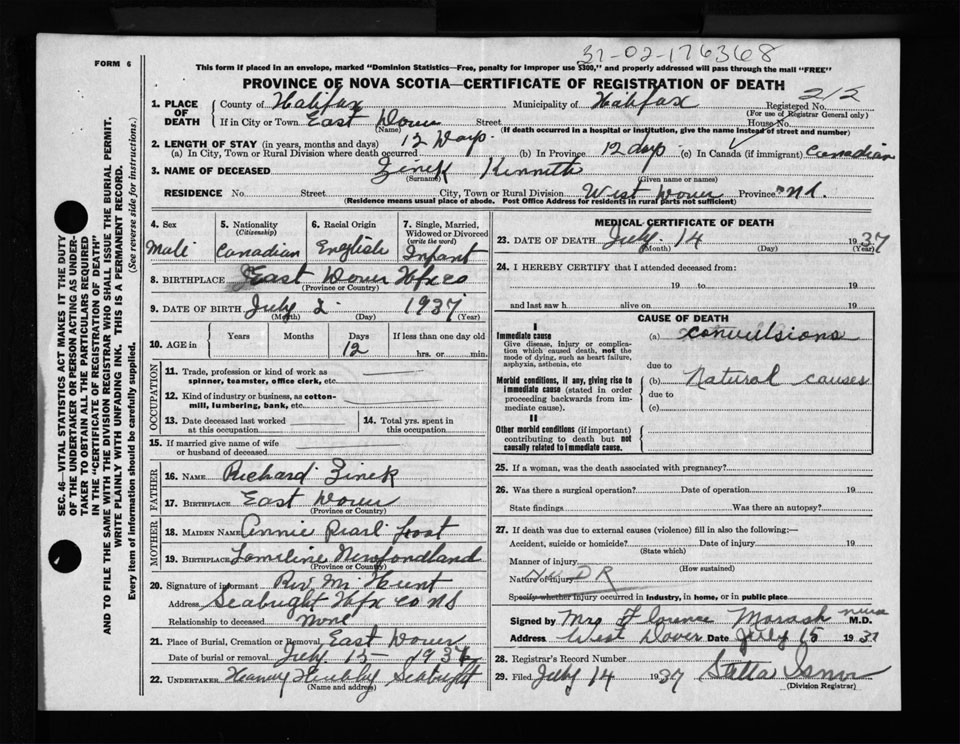 31-02-176368
FORM 6
This form if placed in an envelope, marked "Dominion Statistics—Free, penalty for improper use $300," and properly addressed will pass through the mail "FREE"
PROVINCE OF NOVA SCOTIA—CERTIFICATE OF REGISTRATION OF DEATH
SEC. 46—VITAL STATISTICS ACT MAKES IT THE DUTY
OF THE UNDERTAKER OR PERSON ACTING AS UNDER-
TAKER TO OBTAIN ALL THE PARTICULARS REQUIRED
IN THE "CERTIFICATE OF REGISTRATION OF DEATH"
AND TO FILE THE SAME WITH THE DIVISION REGISTRAR WHO SHALL ISSUE THE BURIAL PERMIT.
WRITE PLAINLY WITH UNFADING INK. THIS IS A PERMANENT RECORD.
Every item of information should be carefully supplied. (See reverse side for instructions.)
1. PLACE OF DEATH
County of Halifax Municipality of Halifax Registered No. 212
(For use of Registrar General only)
If in City or Town East Dover Street House No.
(Name) (If death occurred in a hospital or institution, give the name instead of street and number)
2. LENGTH OF STAY (in years, months and days)
(a) In City, Town or Rural Division where death occurred 12 Days. (b) In Province 12 days (c) In Canada (if immigrant) Canadian
3. NAME OF DECEASED Zinck Kenneth
(Surname) (Given name or names)
RESIDENCE No. Street City, Town or Rural Division West Dover Province
(Residence means usual place of abode. Post Office Address for residents in rural parts not sufficient)
4. Sex
Male
5. Nationality
(Citizenship)
Canadian
6. Racial Origin
English
7. Single, Married, Widowed or Divorced
(write the word)
Infant
8. BIRTHPLACE East Dover Hfx co
(Province or Country)
9. DATE OF BIRTH July 2 1937
(Month) (Day) (Year)
10. AGE in Years Months Days If less than one day old
12 hrs. or min.
OCCUPATION
11. Trade, profession or kind of work as
spinner, teamster, office clerk, etc.
12. Kind of industry or business, as cotton-
mill, lumbering, bank, etc.
13. Date deceased last worked
at this occupation
14. Total yrs. spent in
this occupation
15. If married give name of wife
or husband of deceased
FATHER
16. NAME Richard Zinck
17. BIRTHPLACE East Dover
(Province or Country)
MOTHER
18. MAIDEN NAME Annie Pearl
19. BIRTHPLACE Newfoundland
(Province or Country)
20. Signature of informant Rev. Mr Hunt
Address Seabright Hfx co NS
Relationship to deceased None
21. Place of Burial, Cremation or Removal East Dover
Date of burial or removal July 15 1937
22. UNDERTAKER Seabright
(Name and address)
MEDICAL CERTIFICATE OF DEATH
23. DATE OF DEATH July 14 1937
(Month) (Day) (Year)
24. I HEREBY CERTIFY that I attended deceased from:
19 to 19
and last saw h alive on 19
CAUSE OF DEATH
I
Immediate cause
Give disease, injury or complica-
tion which caused death, not the
mode of dying, such as heart failure,
asphyxia, asthenia, etc
(a) convulsions
due to
Morbid conditions, if any, giving rise to
immediate cause (stated in order
proceeding backwards from im-
mediate cause).
(b) Natural causes
due to
(c)
II
Other morbid conditions (if important)
contributing to death but not
causally related to immediate cause.
25. If a woman, was the death associated with pregnancy?
26. Was there a surgical operation? Date of operation 19
State findings Was there an autopsy?
27. If death was due to external causes (violence) fill in also the following:—
Accident, suicide or homicide? Date of injury 19
(State which)
Manner of injury
(How sustained)
Nature of injury
Specify whether injury occurred in industry, in home, or in public place
Signed by Mrs Florence Morash nurse M.D.
Address West Dover Date July 15 1937
28. Registrar's Record Number
29. Filed July 14 1937 Stella
(Division Registrar)